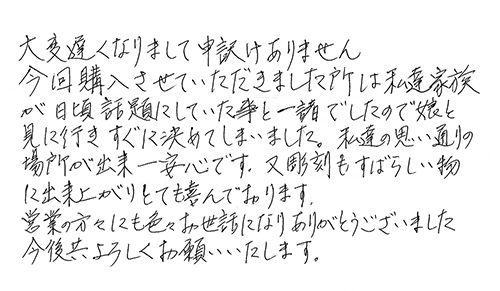 大変遅くなりまして申訳けありません
今回購入させていただきました所は私達家族
が日頃話題にしていた事と一諸でしたので娘と
見に行きすぐに決めてしまいました。私達の思い通りの
場所が出来一安心です。又彫刻もすばらしい物
に出来上がりとても喜んでおります。
営業の方々にも色々お世話になりありがとうございました
今後共よろしくお願いいたします。